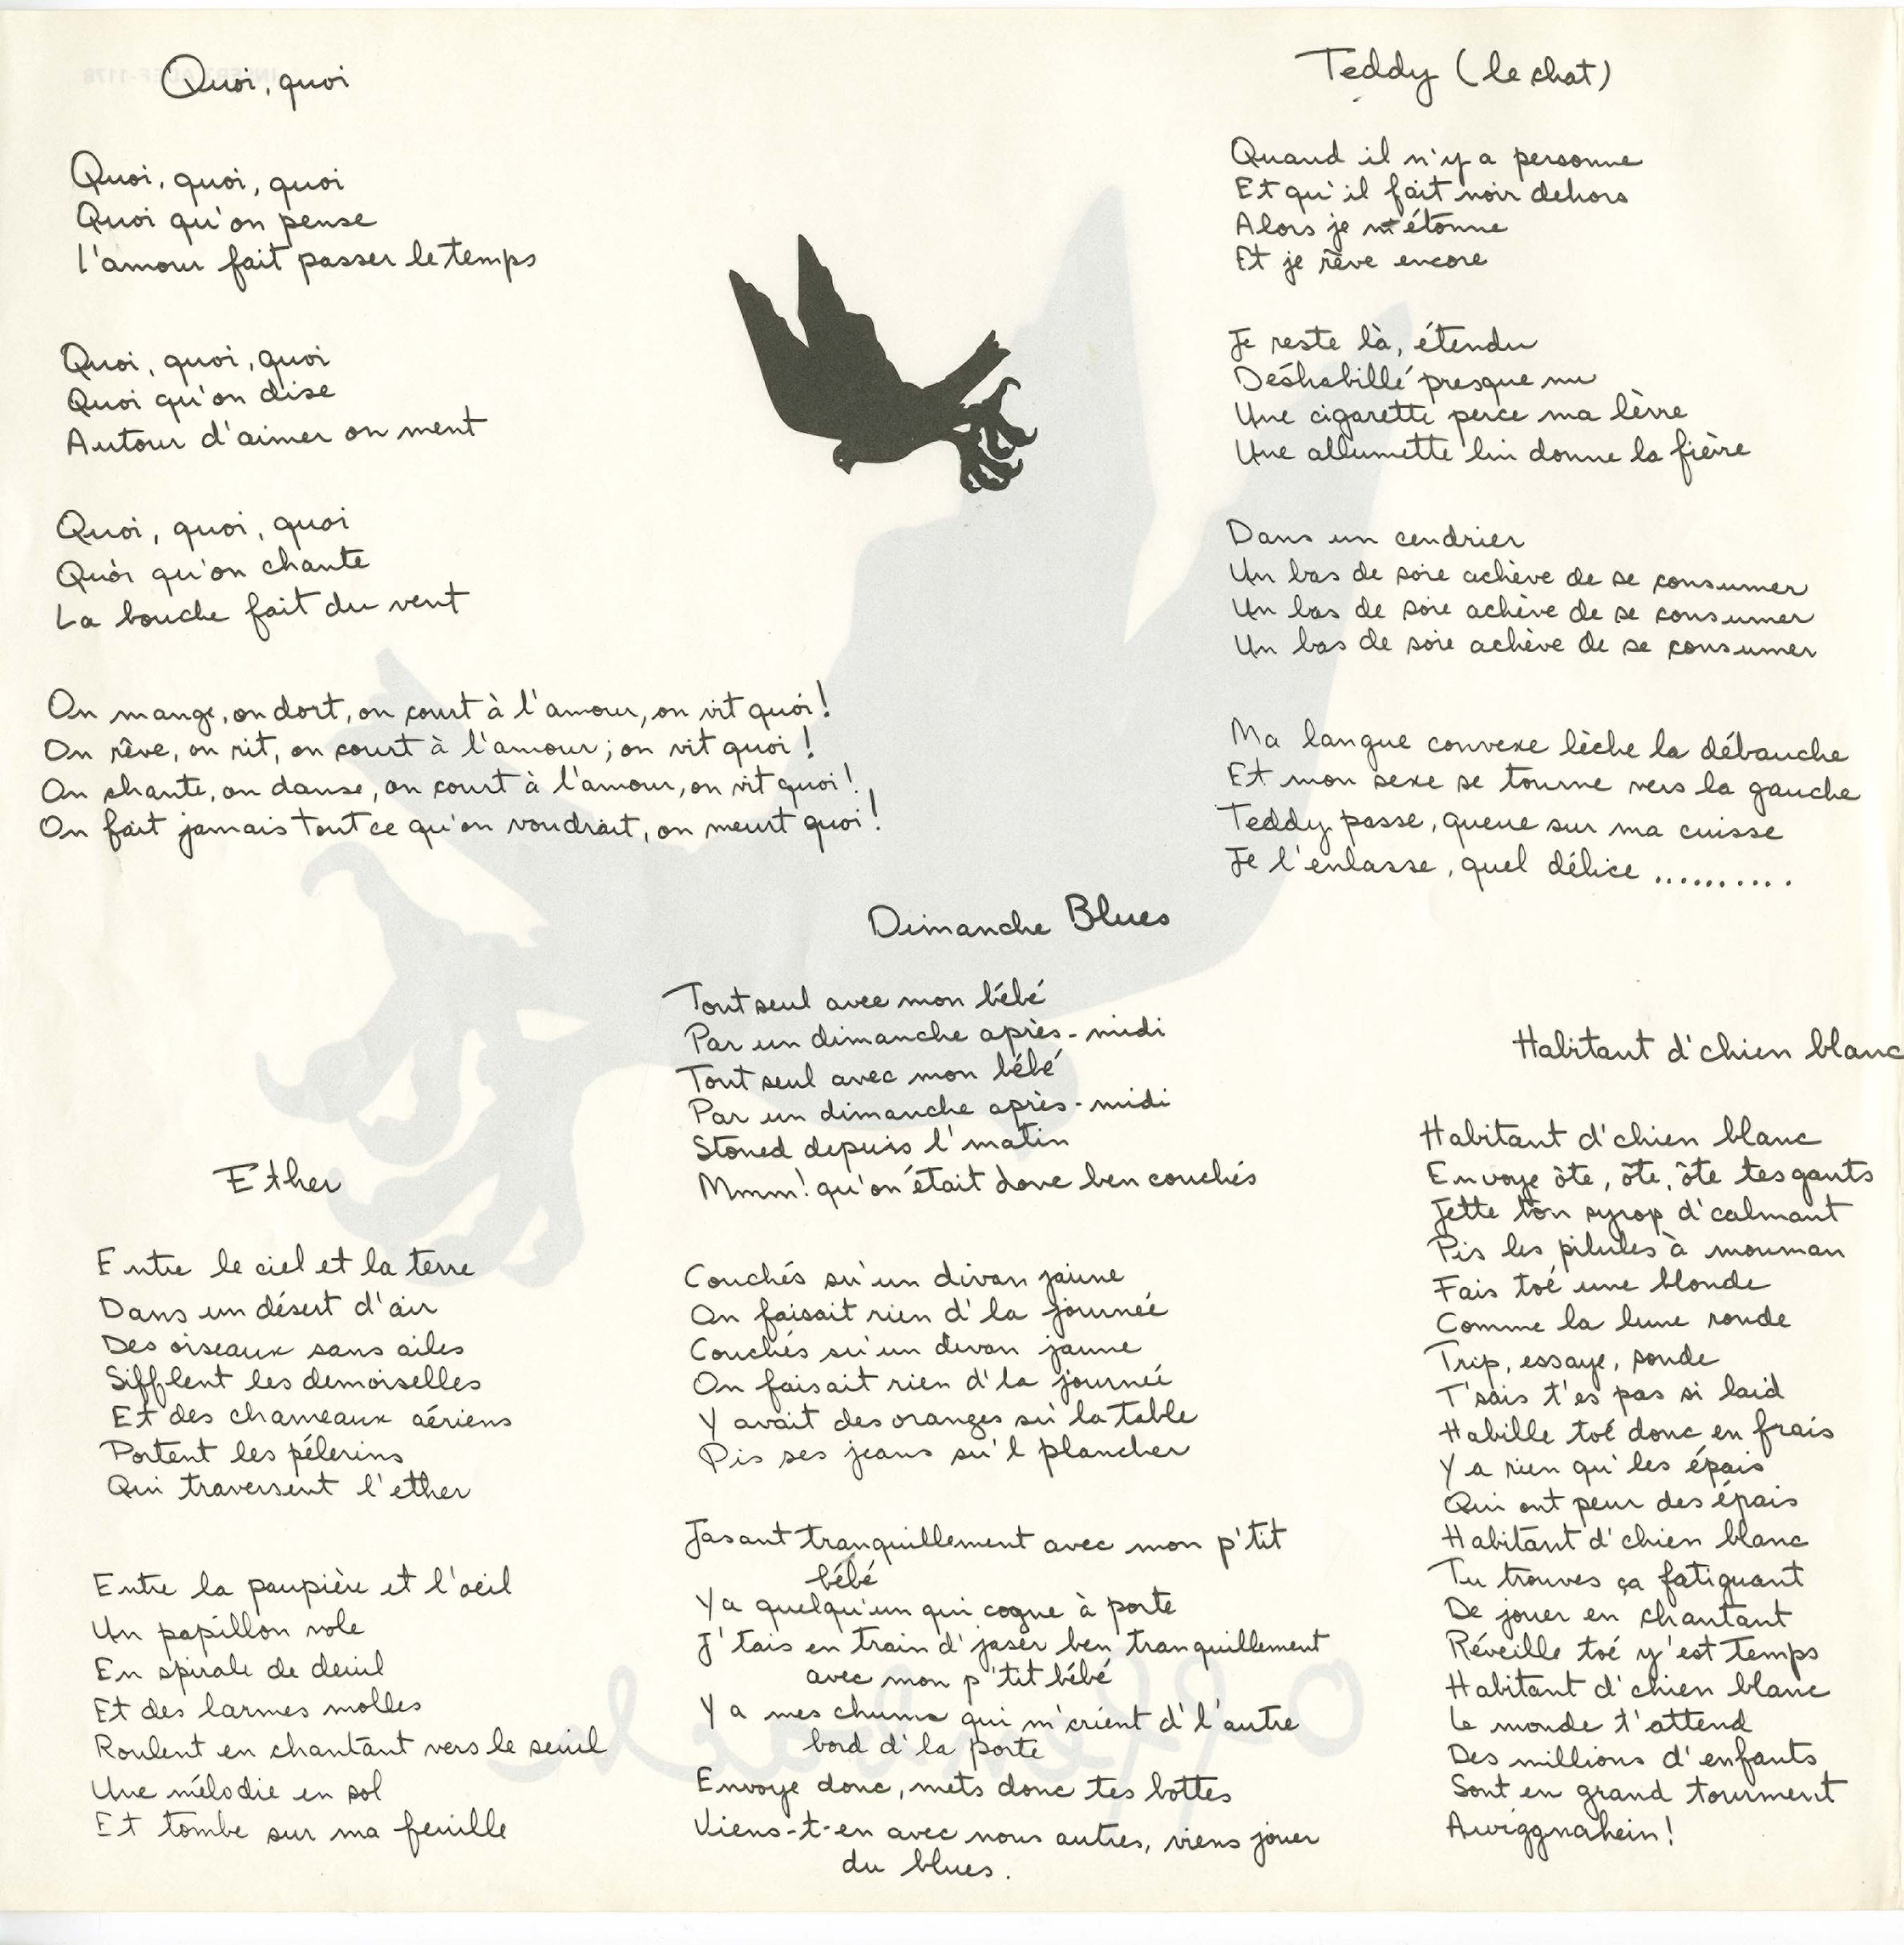 Quoi, quoi
Quoi, quoi, quoi
Quoi qu'on pense
L'amour fait passer le temps
Quoi, quoi, quoi
Quoi qu'on dise
Autour d'aimer on ment
Quoi, quoi, quoi
Quoi qu'on chante
La bouche fait du vent
On mange, on dort, on court à l'amour, on vit quoi!
On rêve, on rit, on court à l'amour; on vit quoi!
On chante, on danse, on court à l'amour, on vit quoi!
On fait jamais tout ce qu'on voudrait, on meurt quoi!
Teddy (le chat)
Quand il n'y a personne
Et qu'il fait noir dehors
Alors je m'étonne
Et je rêve encore
Je reste là, étendu
Déshabillé presque nu
Une cigarette perce ma lèvre
Une allumette lui donne la fièvre
Dans un cendrier
Un bas de soie achève de se consumer
Un bas de soie achève de se consumer
Un bas de soie achève de se consumer
Ma langue convexe lèche la débauche
Et mon sexe se tourne vers la gauche
Teddy passe, queue sur ma cuisse
Je l'enlasse, quel délice ..........
Dimanche Blues
Tout seul avec mon bébé
Par un dimanche après-midi
Tout seul avec mon bébé
Par un dimanche après-midi
Stoned depuis l'matin
Mmm! qu'on était donc ben couchés
Couchés su'un divan jaune
On faisait rien d'la journée
Couchés su'un divan jaune
On faisait rien d'la journée
Y avait des oranges su'la table
Pis ses jeans su'l plancher
Jasant tranquillement avec mon p'tit
bébé
Y a quelqu'un qui cogne à porte
J'tais en train d'jaser ben tranquillement
avec mon p'tit bébé
Y a mes chums qui m'crient d'l'autre
bord d'la porte
Envoye donc, mets donc tes bottes
Viens-t-en avec nous autres, viens jouer
du blues.
Ether
Entre le ciel et la terre
Dans un désert d'air
Des oiseaux sans ailes
Sifflent les demoiselles
Et des chameaux aériens
Portent les pélerins
Qui traversent l'ether
Entre la paupière et l'oeil
Un papillon vole
En spirale de deuil
Et des larmes molles
Roulent en chantant vers le seuil
Une mélodie en sol
Et tombe sur ma feuille
Habitant d'chien blanc
Habitant d'chien blanc
Envoye ôte, ôte, ôte tes gants
Jette ton syrop d'calmant
Pis les pilules à mouman
Fais toé une blonde
Comme la lune ronde
Trip, essaye, sonde
T'sais t'es pas si laid
Habille toé donc en frais
Y a rien qu'les épais
Qui ont peur des épais
Habitant d'chien blanc
Tu trouves ça fatiguant
De jouer en chantant
Réveille toé y'est temps
Habitant d'chien blanc
Le monde t'attend
Des millions d'enfants
Sont en grand tourment
Awiggnahein!